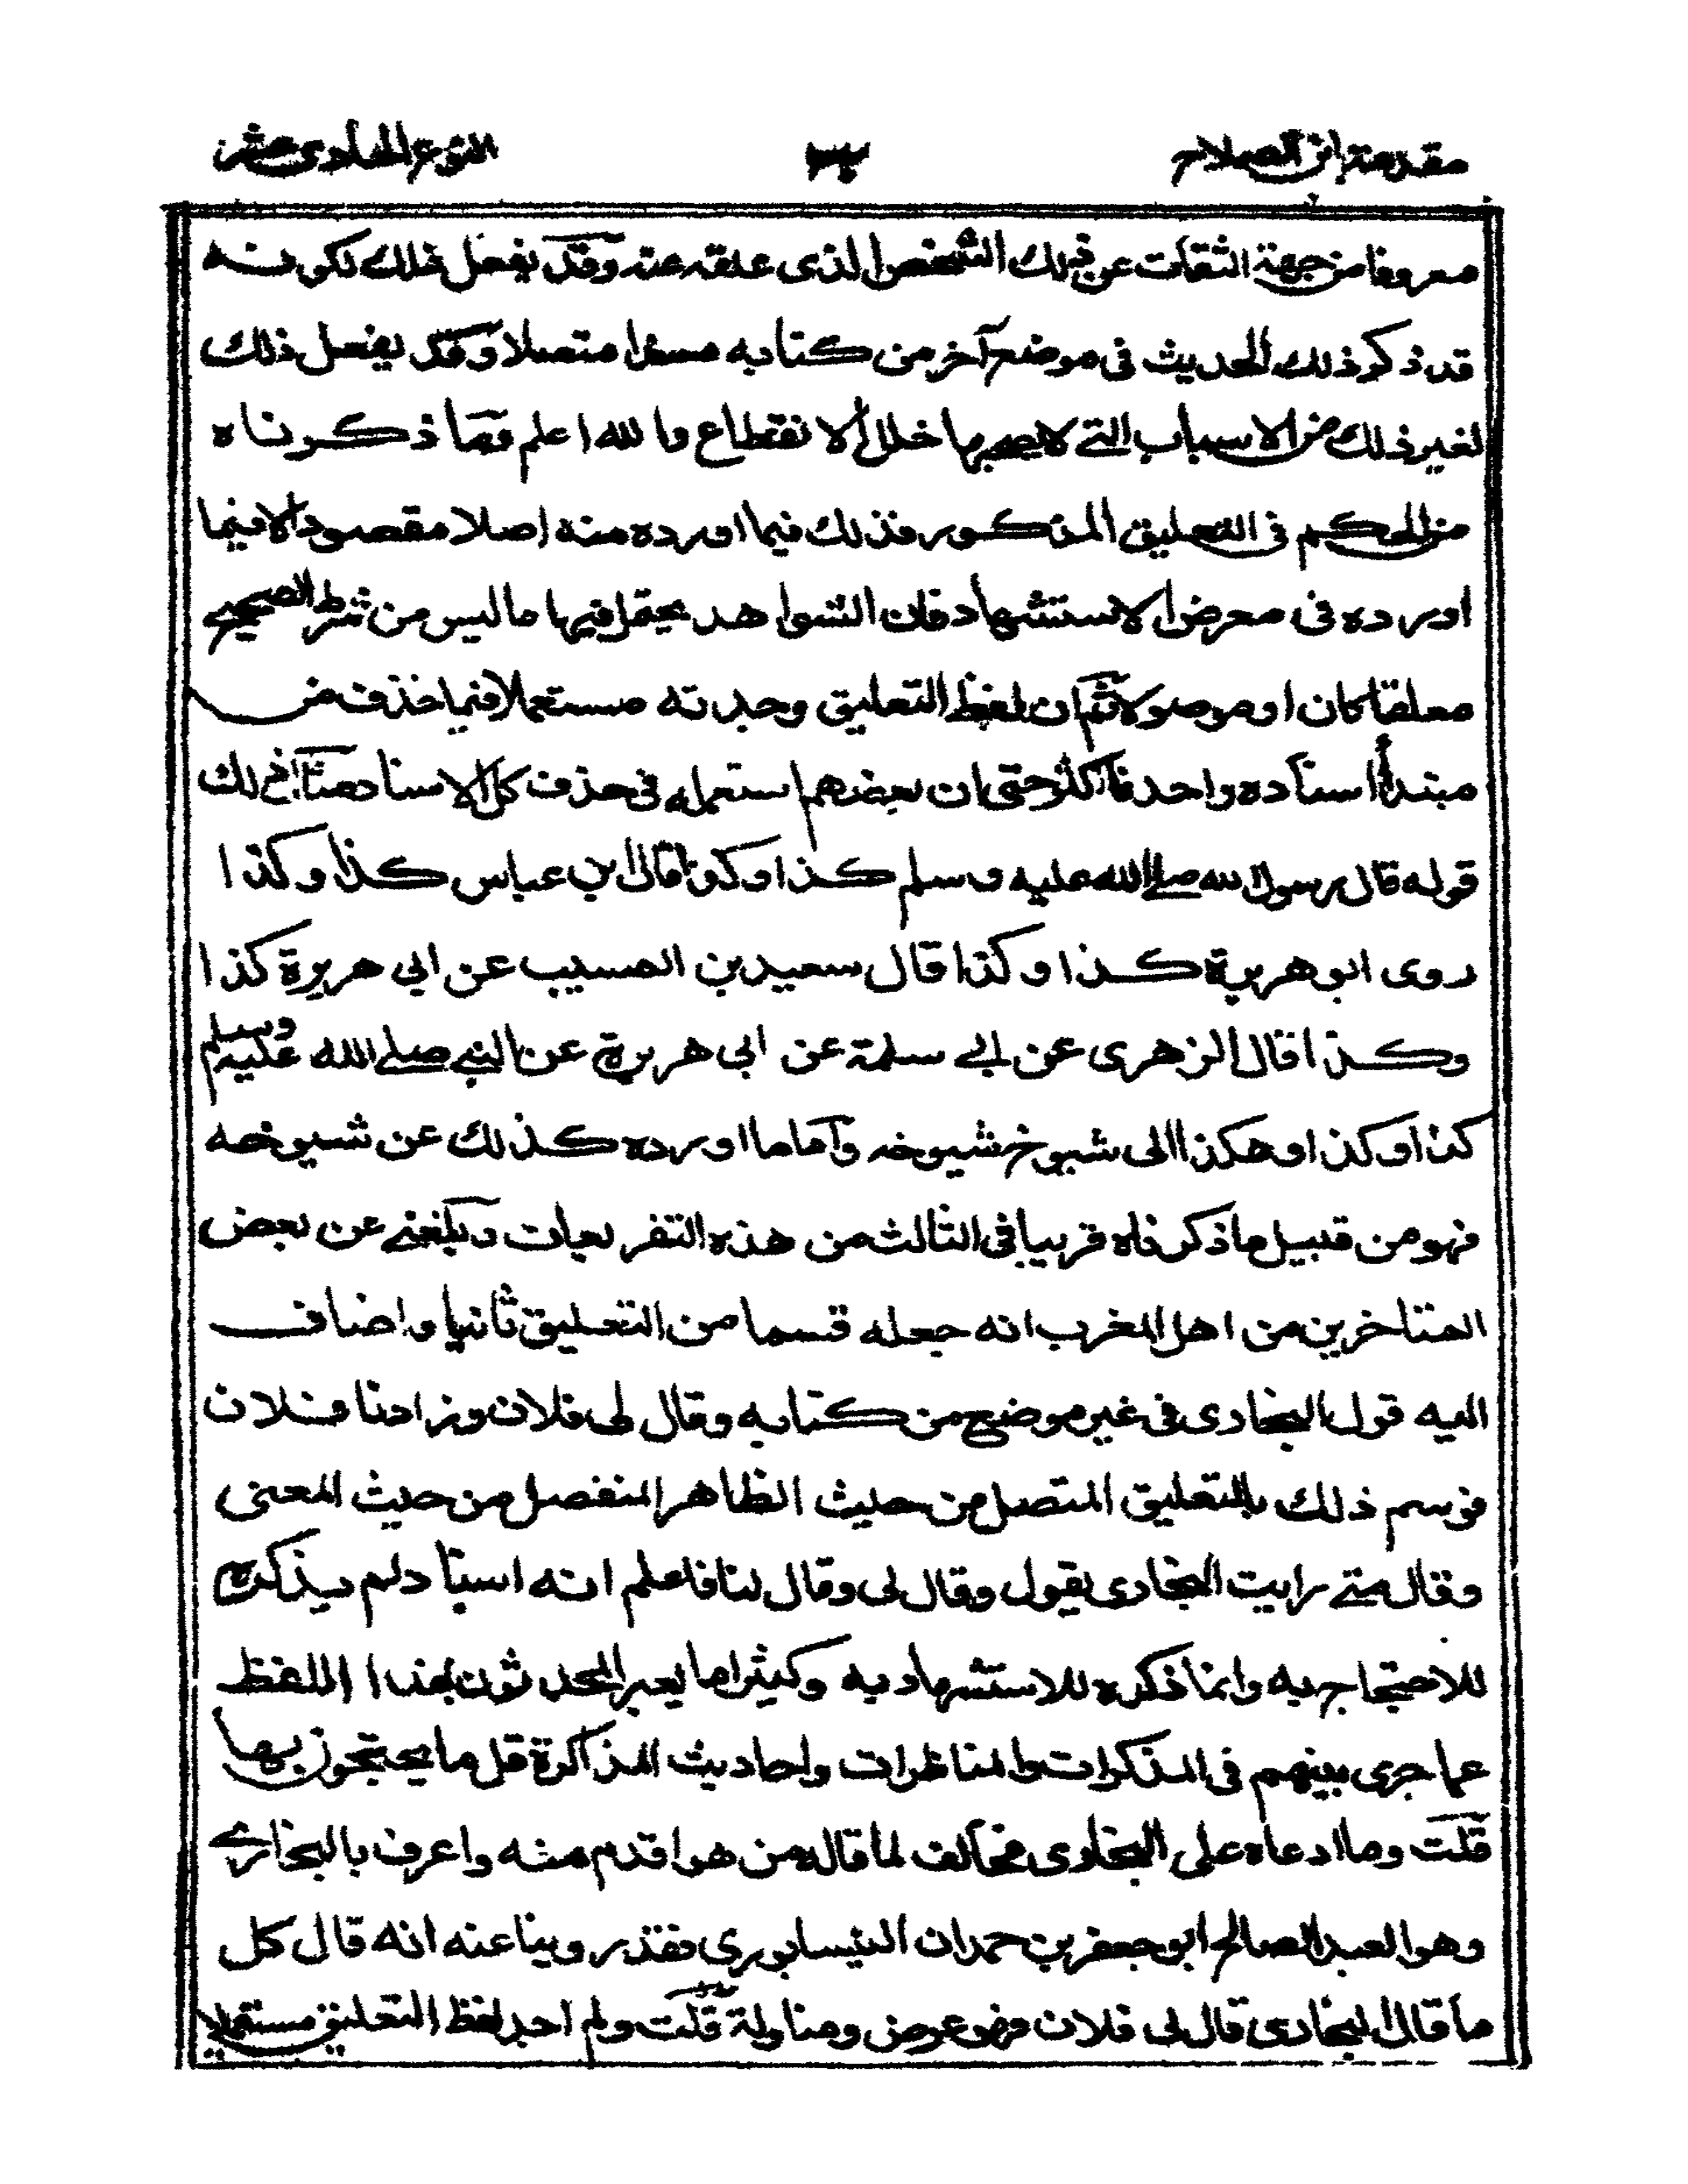 مقدمة ابن الصلاح
النوع الحادي عشر
معروفا من جهة الثقات عن ذلك الشخص الذى علقه عنه وقد يفعل ذلك لكونه
قد ذكر ذلك الحديث فى موضع آخر من كتابه مسندا متصلا وقد يفعل ذلك
لغير ذلك من الاسباب التى لا يصحبها خلل الانقطاع والله اعلم وما ذكرناه
من الحكم فى التعليق المذكور فذلك فيما اورده منه اصلا مقصودا لا فيما
اورده فى معرض الاستشهاد فان الشواهد يحتمل فيها ما ليس من شرط الصحيح
معلقا كان او موصولا ثم ان لفظ التعليق وجدته مستعملا فيما حذف من
مبتدأ اسناده واحد فاكثر حتى ان بعضهم استعمله فى حذف كل الاسناد مثال ذلك
قوله قال رسول الله صلى الله عليه وسلم كذا وكذا قال ابن عباس كذا وكذا
روى ابو هريرة كذا وكذا قال سعيد بن المسيب عن ابي هريرة كذا
وكذا قال الزهرى عن ابى سلمة عن ابى هريرة عن النبى صلى الله عليه وسلم
كذا وكذا وهكذا الى شيوخ شيوخه واما ما اورده كذلك عن شيوخه
فهو من قبيل ما ذكرناه قريبا فى الثالث من هذه التفريعات وبلغنى عن بعض
المتاخرين من اهل المغرب انه جعله قسما من التعليق ثانيا واضاف
اليه قول البخارى فى غير موضع من كتابه وقال لى فلان وزادنا فلان
فوسم ذلك بالتعليق المتصل من حيث الظاهر المنفصل من حيث المعنى
وقال متى رايت البخارى يقول وقال لى وقال لنا فاعلم انه اسناد لم يذكره
للاحتجاج به وانما ذكره للاستشهاد به وكثيرا ما يعبر المحدثون بهذا اللفظ
عما جرى بينهم فى المذكرات والمناظرات واحاديث المذاكرة قل ما يحتجون بها
قلت وما ادعاه على البخارى مخالف لما قاله من هو اقدم منه واعرف بالبخارى
وهو العبد الصالح ابو جعفر بن حمدان النيسابورى فقد روينا عنه انه قال كل
ما قال البخارى قال لى فلان فهو عرض ومناولة قلت ولم اجد لفظ التعليق مستعملا